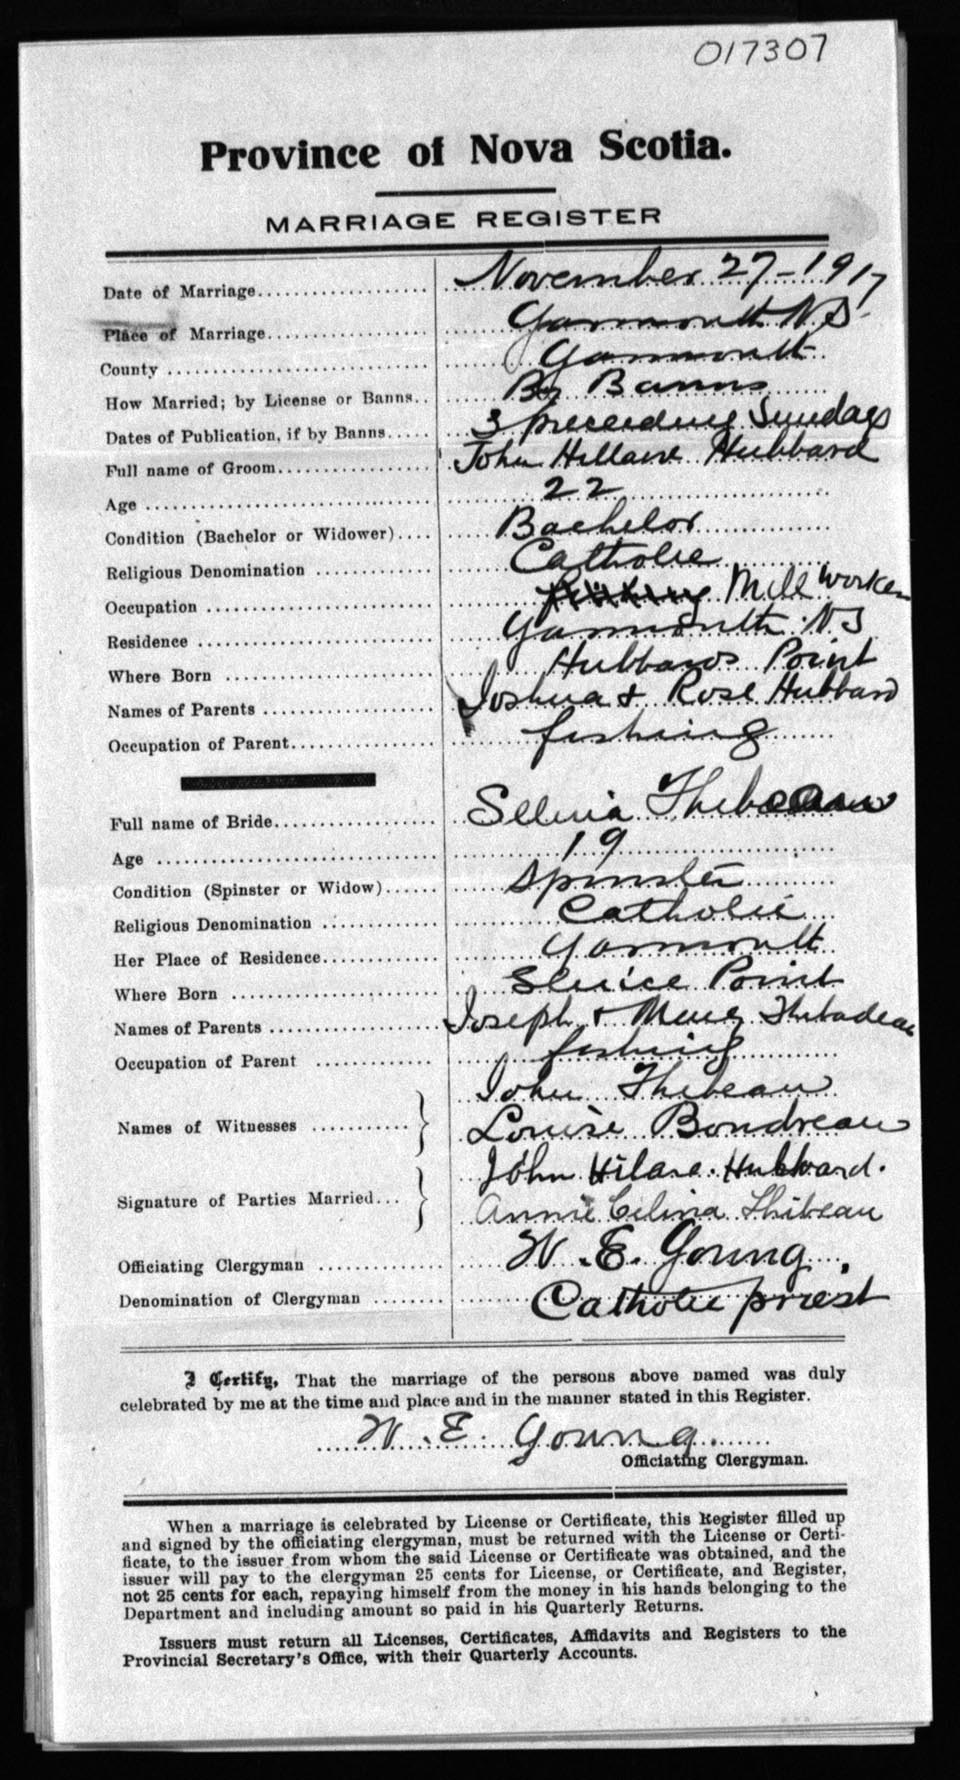 017307
Province of Nova Scotia.
MARRIAGE REGISTER
Date of Marriage.................... November 27-1917
Place of Marriage.................... Yarmouth N.S.
County .................... Yarmouth
How Married; by License or Banns.. By Banns
Dates of Publication, if by Banns..... 3 preceeding Sundays
Full name of Groom.................... John Hubbard
Age .................... 22
Condition (Bachelor or Widower).... Bachelor
Religious Denomination ............ Catholic
Occupation .................... Mill Worker
Residence .................... Yarmouth N.S
Where Born .................... Hubbards Point
Names of Parents .................... Joshua & Rose Hubbard
Occupation of Parent.................... fishing
Full name of Bride.................... Selina Thibeau
Age .................... 19
Condition (Spinster or Widow)...... Spinster
Religious Denomination ............ Catholic
Her Place of Residence............. Yarmouth
Where Born .................... Sluice Point
Names of Parents .................... Joseph & Thibadeau
Occupation of Parent ............ fishing
John Thibeau
Names of Witnesses ...........
Louise Boudreau
John Hilare Hubbard.
Signature of Parties Married...
Annie Celina Thibeau
Officiating Clergyman ............ W.E. Young.
Denomination of Clergyman ........ Catholic priest
I Certify, That the marriage of the persons above named was duly
celebrated by me at the time and place and in the manner stated in this Register.
W.E. Young.
Officiating Clergyman.
When a marriage is celebrated by License or Certificate, this Register filled up
and signed by the officiating clergyman, must be returned with the License or Certi-
ficate, to the issuer from whom the said License or Certificate was obtained, and the
issuer will pay to the clergyman 25 cents for License, or Certificate, and Register,
not 25 cents for each, repaying himself from the money in his hands belonging to the
Department and including amount so paid in his Quarterly Returns.
Issuers must return all Licenses, Certificates, Affidavits and Registers to the
Provincial Secretary's Office, with their Quarterly Accounts.